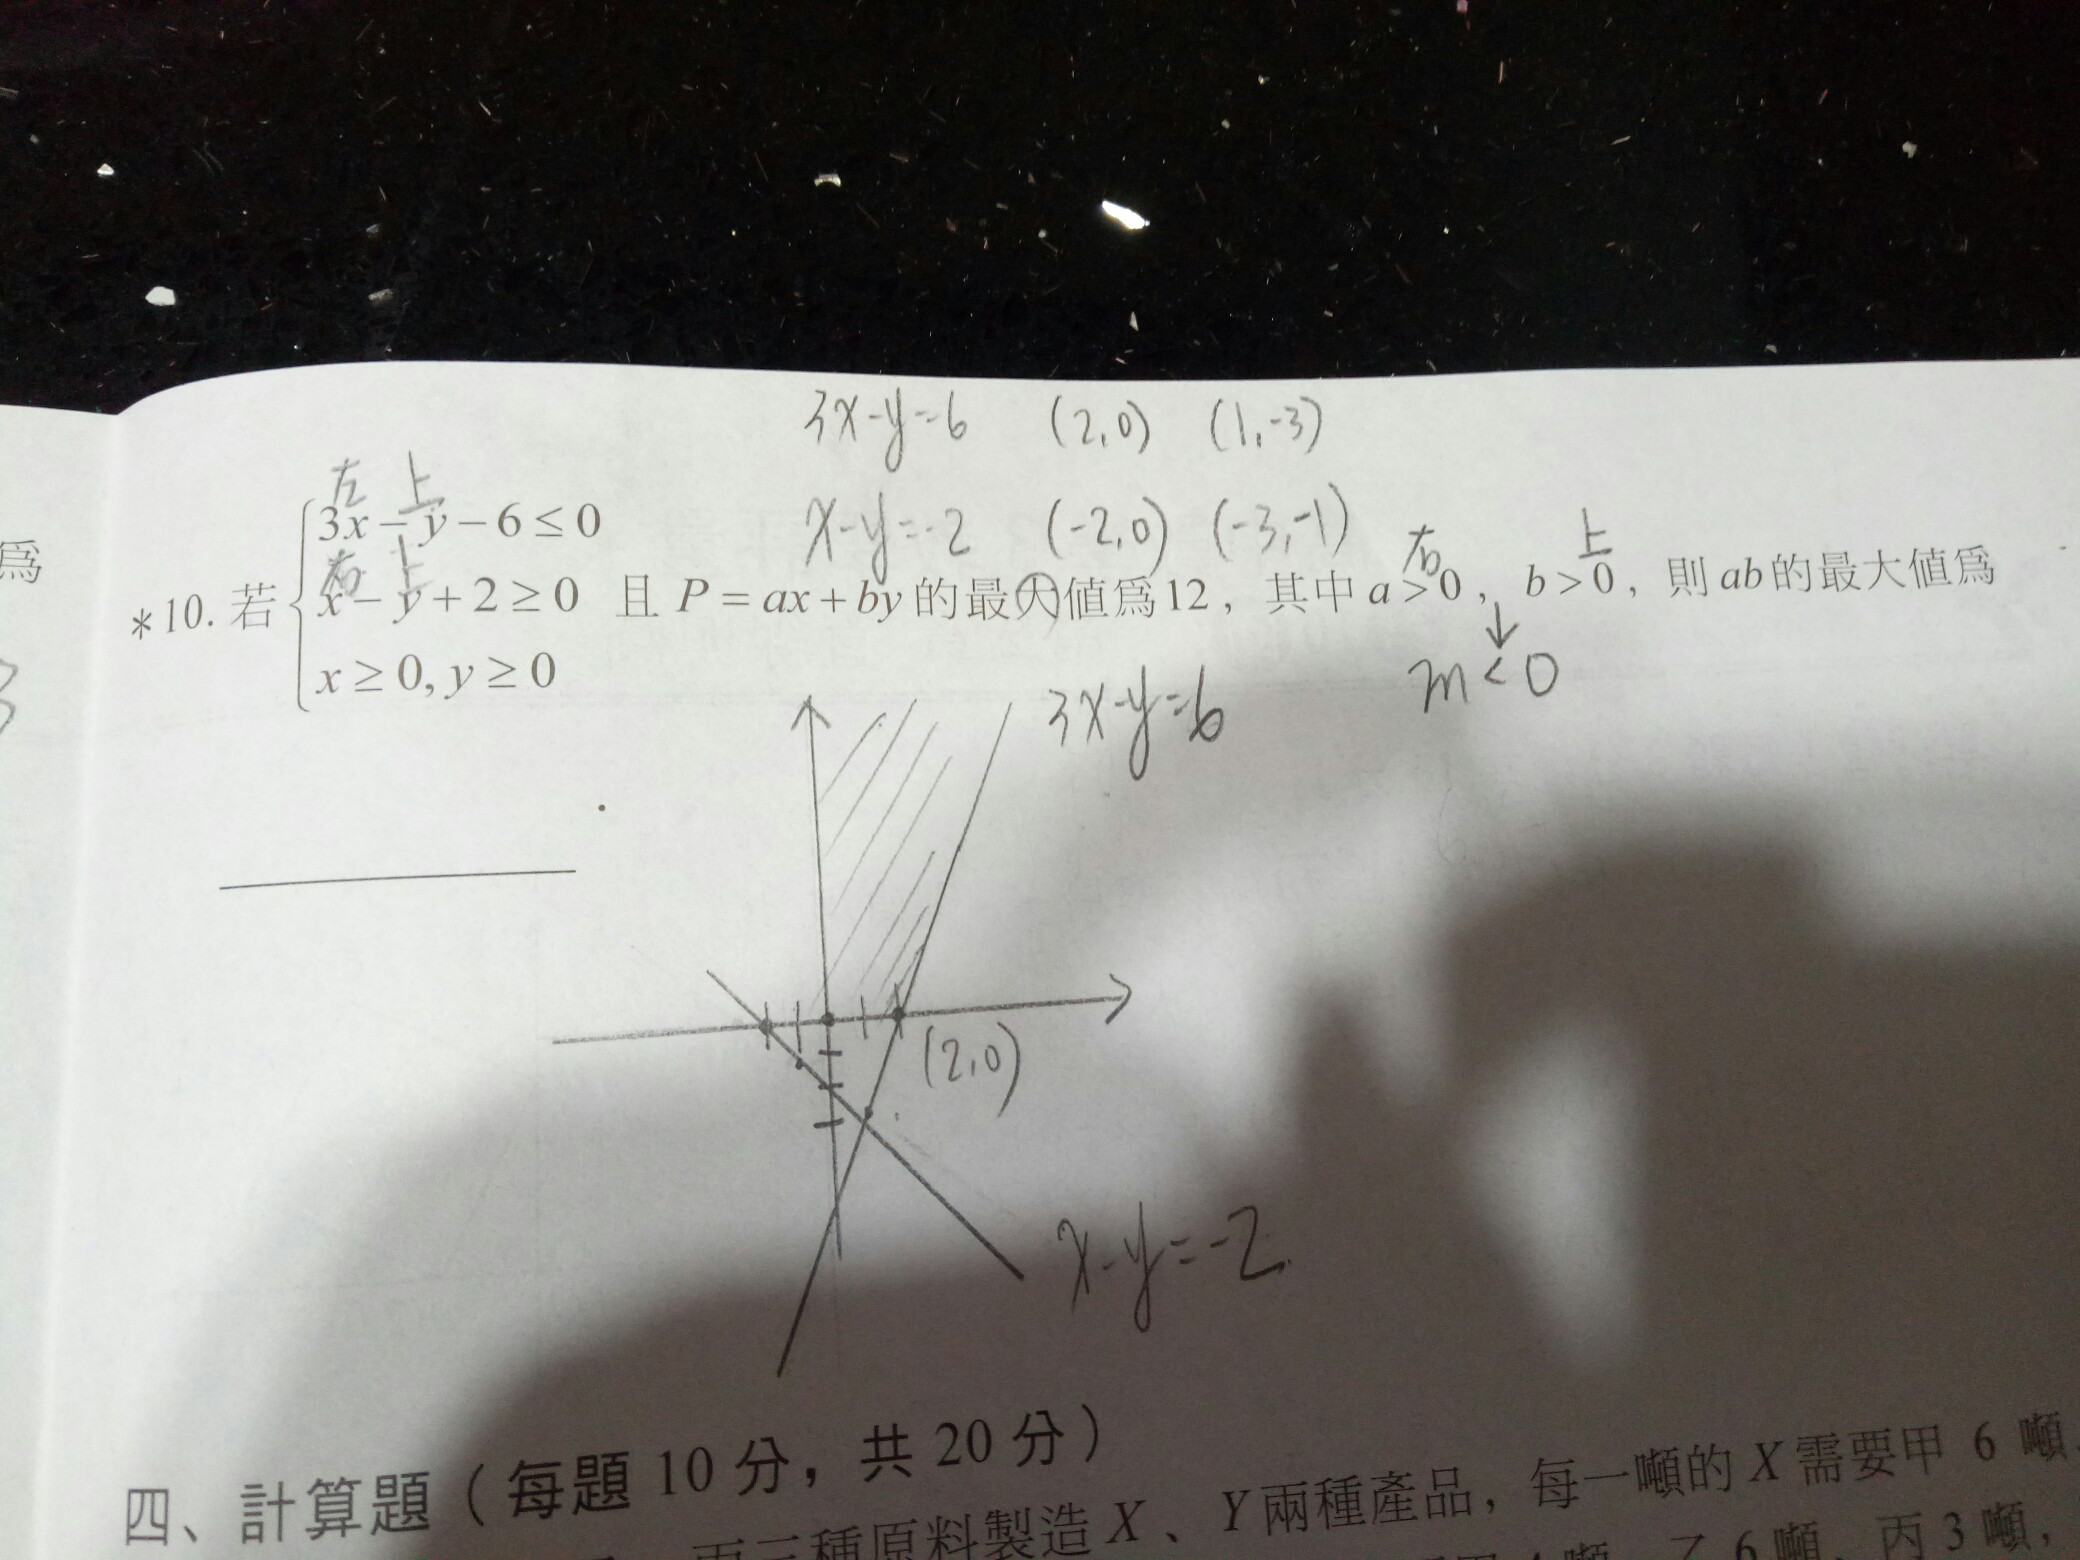 3x-y=6 (2,0) (1,-3)
左 上
3x-y-6≤0
x-y=-2 (-2,0) (-3,-1)
右 上
為
*10. 若 x-y+2≥0 且 P=ax+by的最大值為12，其中a>0，b>0，則ab的最大值為
右 上
x≥0, y≥0
m<0
3x-y=6
(2,0)
x-y=-2
四、計算題（每題 10 分，共 20 分）
丙三種原料製造 X、Y 兩種產品，每一噸的 X 需要甲 6 噸
乙 6 噸、丙 3 噸，